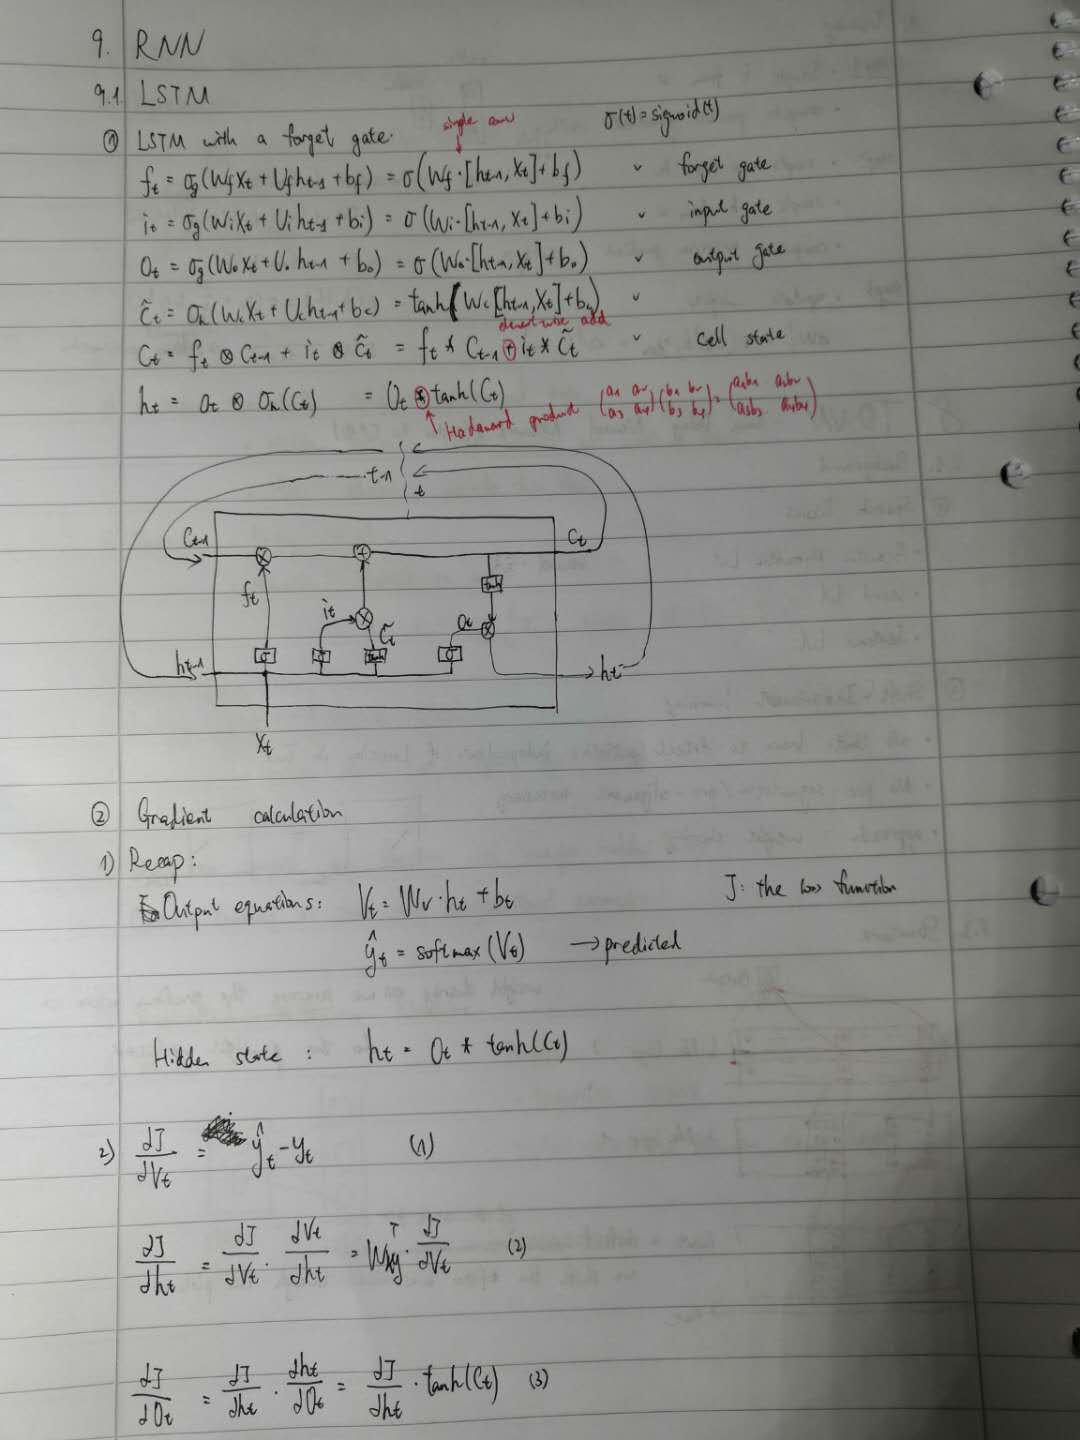 9. RNN
9.1 LSTM
① LSTM with a forget gate. single σ(t) = sigmoid(t)
f_t = σ_g(W_f x_t + U_f h_t-1 + b_f) = σ(W_f · [h_t-1, x_t] + b_f) ✓ forget gate
i_t = σ_g(W_i x_t + U_i h_t-1 + b_i) = σ(W_i · [h_t-1, x_t] + b_i) ✓ input gate
O_t = σ_g(W_o x_t + U_o h_t-1 + b_o) = σ(W_o · [h_t-1, x_t] + b_o) ✓ output gate
C̃_t = σ_h(W_c x_t + U_c h_t-1 + b_c) = tanh(W_c [h_t-1, x_t] + b_c) ✓
element wise add
C_t = f_t ⊗ C_t-1 + i_t ⊗ C̃_t = f_t * C_t-1 + i_t * C̃_t ✓ cell state
h_t = O_t ⊗ σ_h(C_t) = O_t * tanh(C_t)
↑ Hadamard product (a1 a2 a3 a4)(b1 b2 b3 b4) = (a1b1 a2b2 a3b3 a4b4)
t-1
t
C_t-1 × + C_t
tanh
f_t i_t × C̃_t O_t ×
h_t-1 σ σ tanh σ h_t
x_t
② Gradient calculation
1) Recap:
Output equations: V_t = W_v · h_t + b_t J: the loss function
ŷ_t = softmax(V_t) → predicted
Hidden state : h_t = O_t * tanh(C_t)
2) dJ/dV_t = ŷ_t - y_t (1)
dJ/dh_t = dJ/dV_t · dV_t/dh_t = W^T · dJ/dV_t (2)
dJ/dO_t = dJ/dh_t · dh_t/dO_t = dJ/dh_t · tanh(C_t) (3)